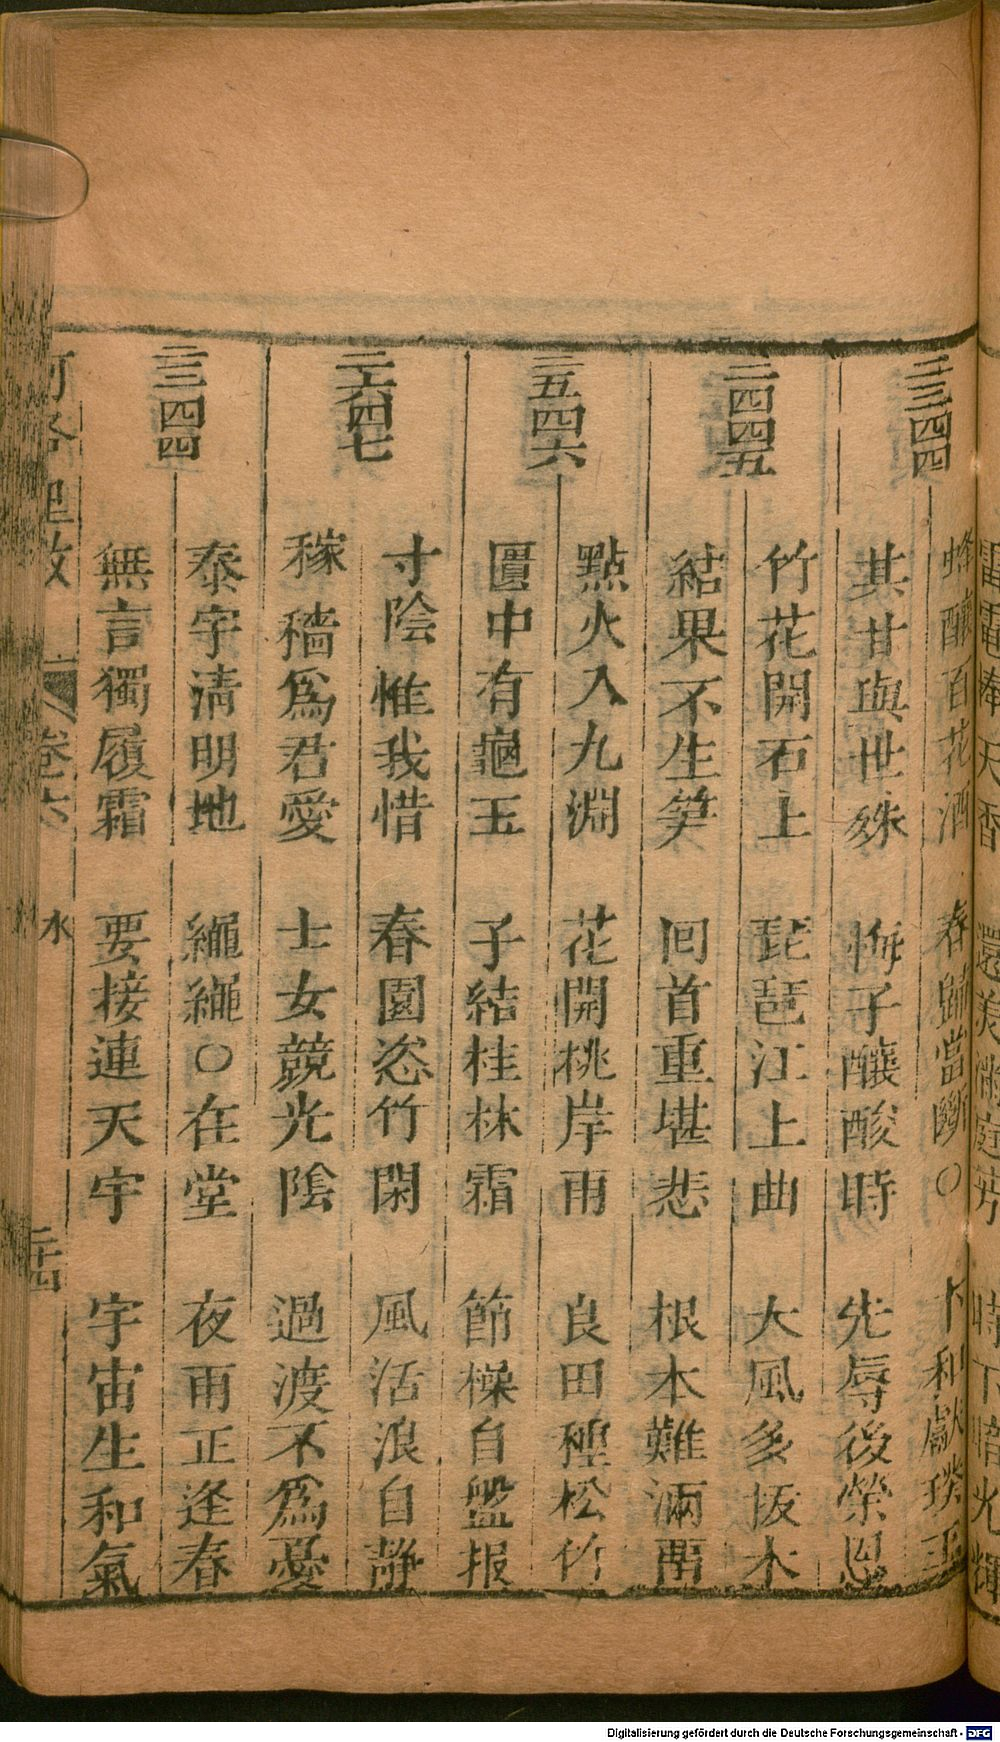 二三四四
蜂釀百花酒 春歸當斷○ 卞和獻璞玉
其甘與世殊 悔子釀酸時 先辱後榮恩
二四四五
竹花開石上 琵琶江上曲 大風多拔木
結果不生笋 回首重堪悲 根本難滿
二五四六
點火入九淵 花開桃岸雨 良田種松竹
匵中有龜玉 子結桂林霜 節操自盤报
二六四七
寸陰惟我惜 春園恣竹閑 風活浪自静
稼穡爲君愛 士女競光陰 過渡不爲憂
三三四四
泰宇清明地 繩繩○在堂 夜雨正逢春
無言獨履霜 要接連天宇 宇宙生和氣
卷六 水
Digitalisierung gefördert durch die Deutsche Forschungsgemeinschaft - DFG